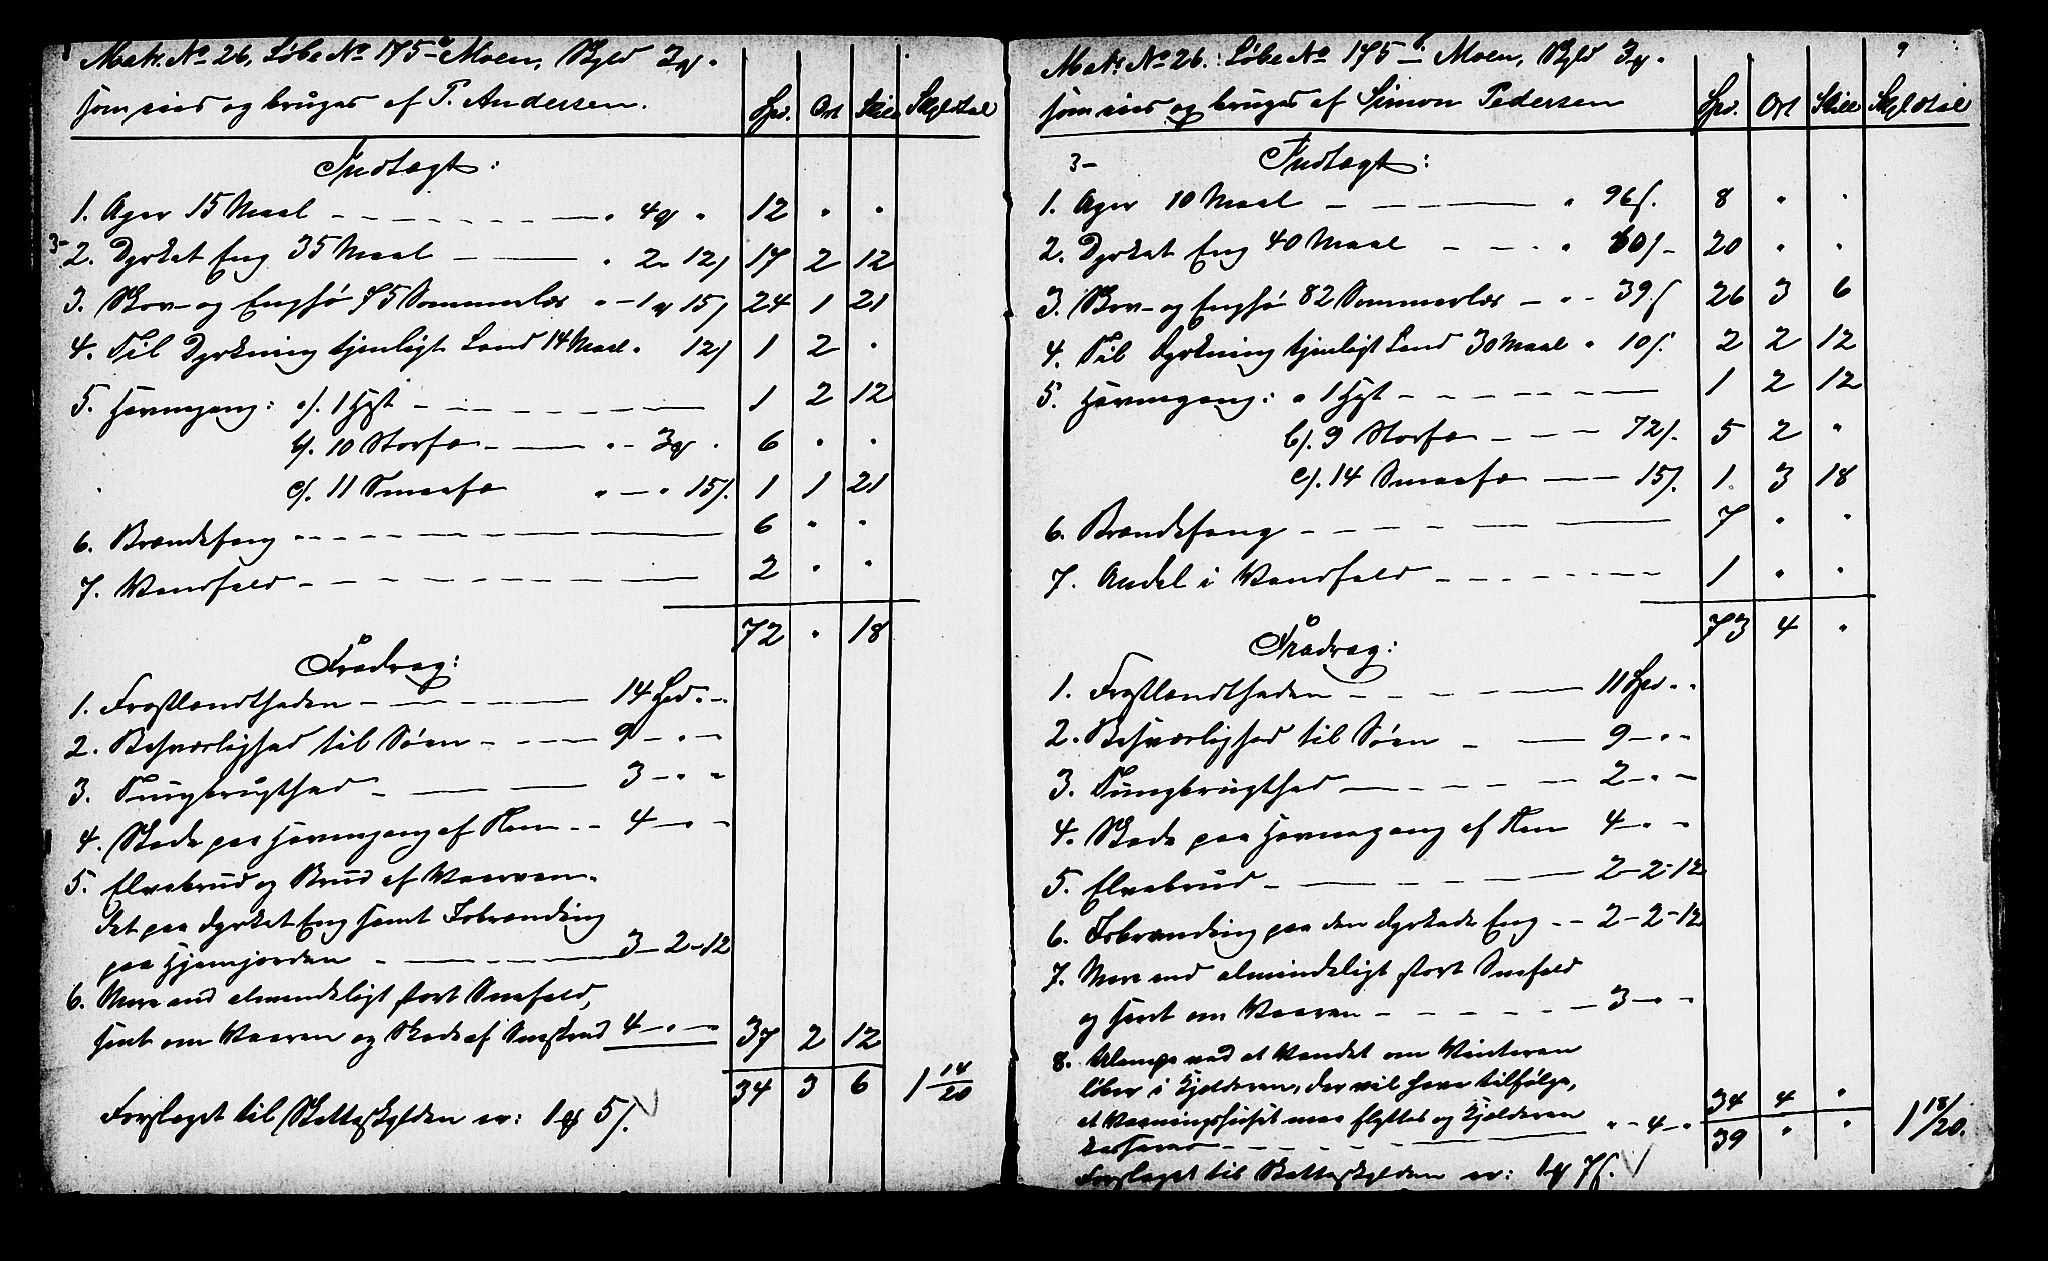 Matr. No 26, Løbe No 175a Moen, Skyld 3 ₰.
som eies og bruges af P. Andersen. Spd. Ort Skill Skyldtal
Indtægt:
1. Ager 15 Maal — — — " 4 ₰ " 12 " "
3- 2. Dyrket Eng 35 Maal — — " 2 - 12/ 17 2 12
3. Skov- og Enghø 75 Sommerlæs " - 1 ₰ 15/ 24 1 21
4. Til Dyrkning tjenligt Land 14 Maal " 12/ 1 2 "
5. Havnegang: a/. 1 Hest — — — 1 2 12
b/. 10 Storfæ — — " - 3 ₰ . 6 " "
c/. 11 Smaafæ " — " 15/. 1 1 21
6. Brændefang — — — 6 " "
7. Vandfald — — — 2 " "
72 " 18
Fradrag:
1. Frostlændtheden — — — 14 Spd. " -
2. Besværlighed til Søen — — — 9 - " -
3. Tungbrugthed — — — 3 - " "
4. Skade paa Havnegang af Ren - - 4 - " -
5. Elvebrud og Brud af Vaarvan-
det paa dyrket Eng samt Isbrænding
paa Hjemjorden — — — 3 - 2 - 12
6. Mere end almindeligt stort Snefald,
sent om Vaaren og Skade af Sneskred 4 - " - 37 2 12
34 3 6 1 14/20
Forslaget til Matteskylden er: 1 ₰ 5/.
9
Matr. No 26. Løbe No 175b Moen, Skyld 3 ₰.
som eies og bruges af Simon Pedersen Spd. Ort Skill Skyldtal
3- Indtægt:
1. Ager 10 Maal — — " 96/. 8 " "
2. Dyrket Eng 40 Maal — — " 60/- 20 " "
3. Skov- og Enghø 82 Sommerlæs — " - 39/ 26 3 6
4. Til Dyrkning tjenligt Land 30 Maal " 10/. 2 2 12
5. Havnegang: a 1 Hest — — — 1 2 12
b/. 9 Storfæ — — — 72/. 5 2 "
c/. 14 Smaafæ — — 15/. 1. 3 18
6. Brændefang — — — 7 " "
7. Andel i Vandfald — — — 1 " "
73 4 "
Fradrag:
1. Frostlændtheden — — — 11 Spd " "
2. Besværlighed til Søen — — 9 - " "
3. Tungbrugthed — — — 2 - " -
4. Skade paa Havnegang af Ren 4 - " -
5. Elvebrud — — — 2 - 2 - 12
6. Isbrænding paa den dyrkede Eng - - 2 - 2 - 12
7. Mere end almindeligt stort Snefald
og sent om Vaaren — — — 3 - " -
8. Ulempe ved at Vandet om Vinteren
løber i Kjelderen, der vil have tilfølge,
at Vaaningshuset maa flyttes og Kjælderen 34 4 "
— — — " - 4 - " 39 " " 1 18/20.
Forslaget til Matteskylden er: 1 ₰ 7/.